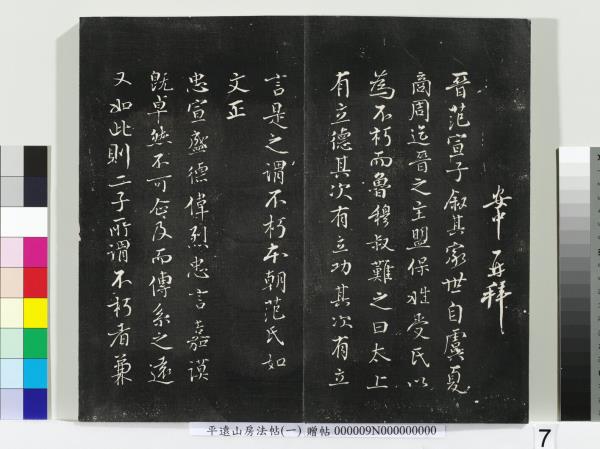 再拜
晉范宣子叙其家世自虞夏
商周迄晉之主盟保姓受氏以
為不朽而魯穆叔難之曰太上
有立德其次有立功其次有立
言是之謂不朽本朝范氏如
文正
忠宣盛德偉烈忠言嘉謨
既卓然不可企及而傳系之遠
又如此則二子所謂不朽者兼
平遠山房法帖(一) 贈帖 000009N000000000
7